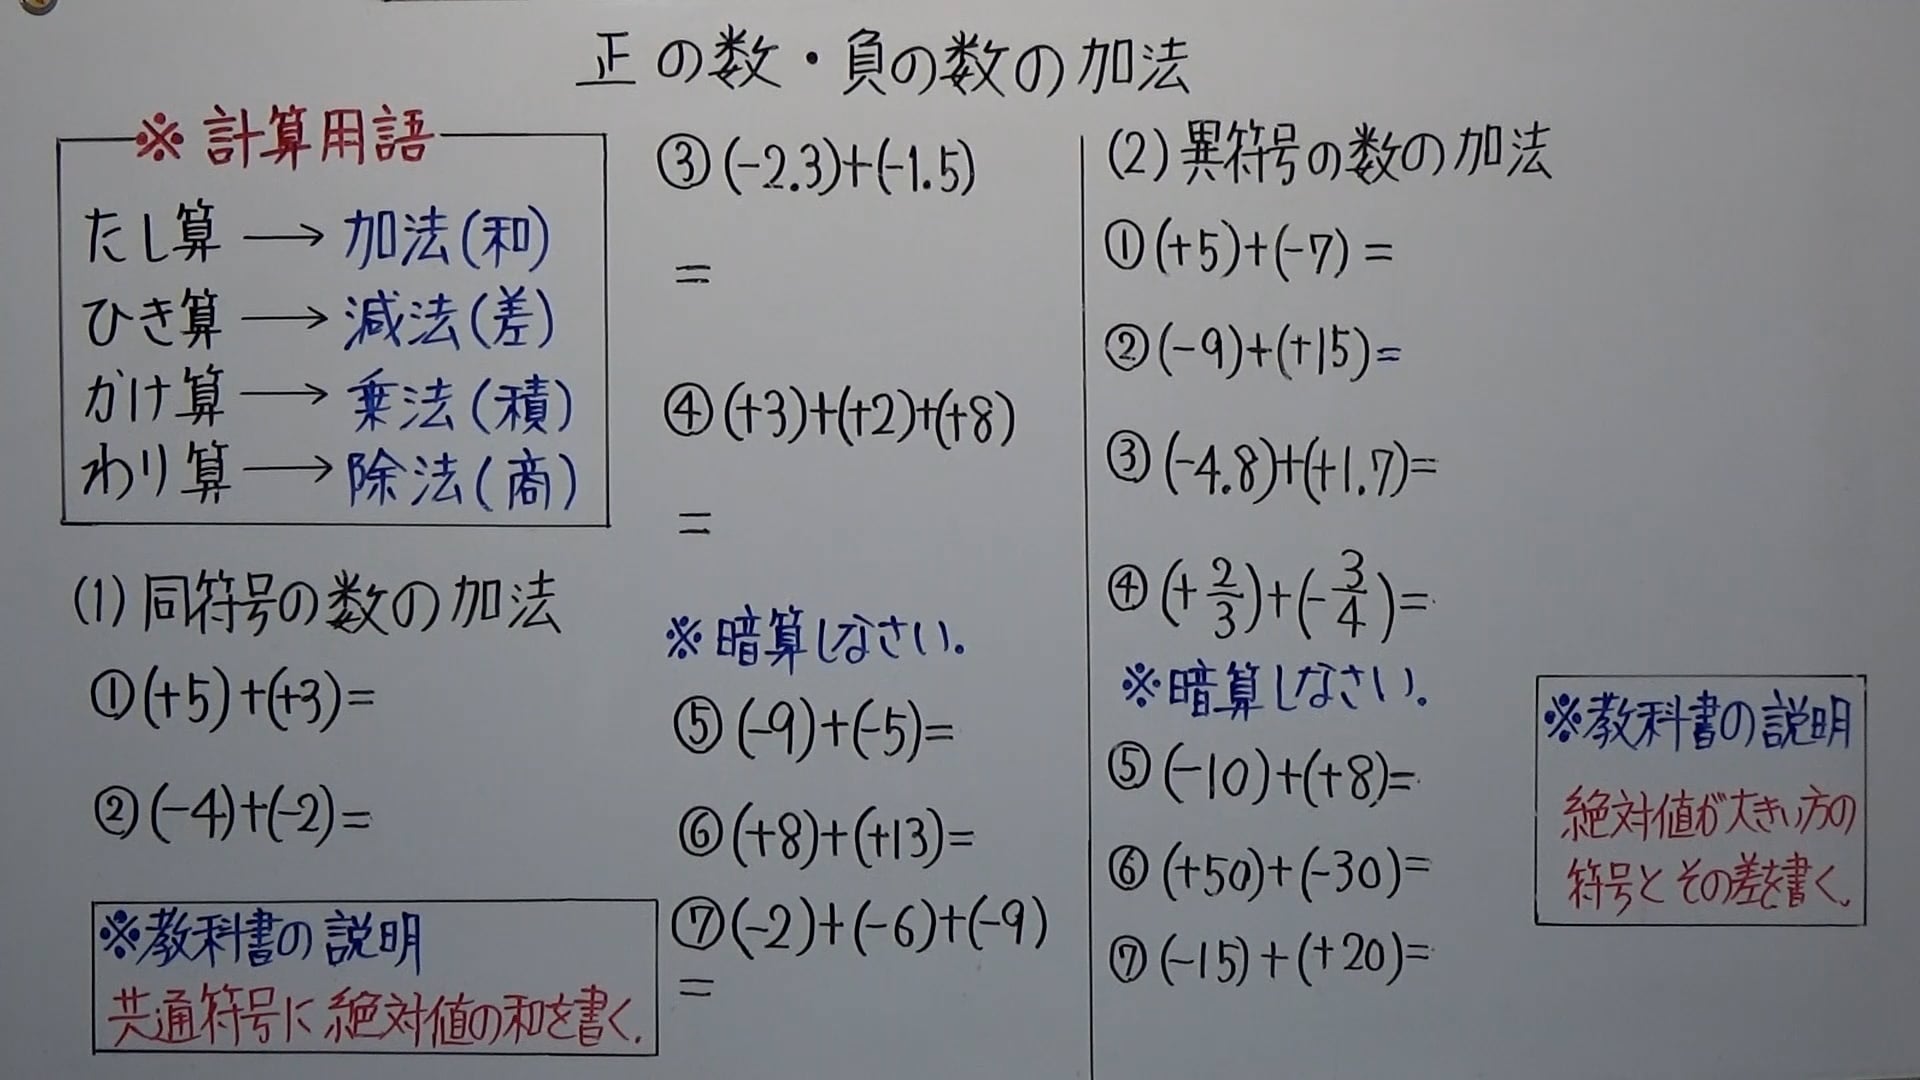 正の数・負の数の加法
※計算用語
たし算 → 加法(和)
ひき算 → 減法(差)
かけ算 → 乗法(積)
わり算 → 除法(商)
(1)同符号の数の加法
①(+5)+(+3)=
②(-4)+(-2)=
※教科書の説明
共通符号に絶対値の和を書く.
③(-2.3)+(-1.5)
=
④(+3)+(+2)+(+8)
=
※暗算しなさい。
⑤(-9)+(-5)=
⑥(+8)+(+13)=
⑦(-2)+(-6)+(-9)
=
(2)異符号の数の加法
①(+5)+(-7)=
②(-9)+(+15)=
③(-4.8)+(+1.7)=
④(+2/3)+(-3/4)=
※暗算しなさい。
⑤(-10)+(+8)=
⑥(+50)+(-30)=
⑦(-15)+(+20)=
※教科書の説明
絶対値が大きい方の
符号とその差を書く.